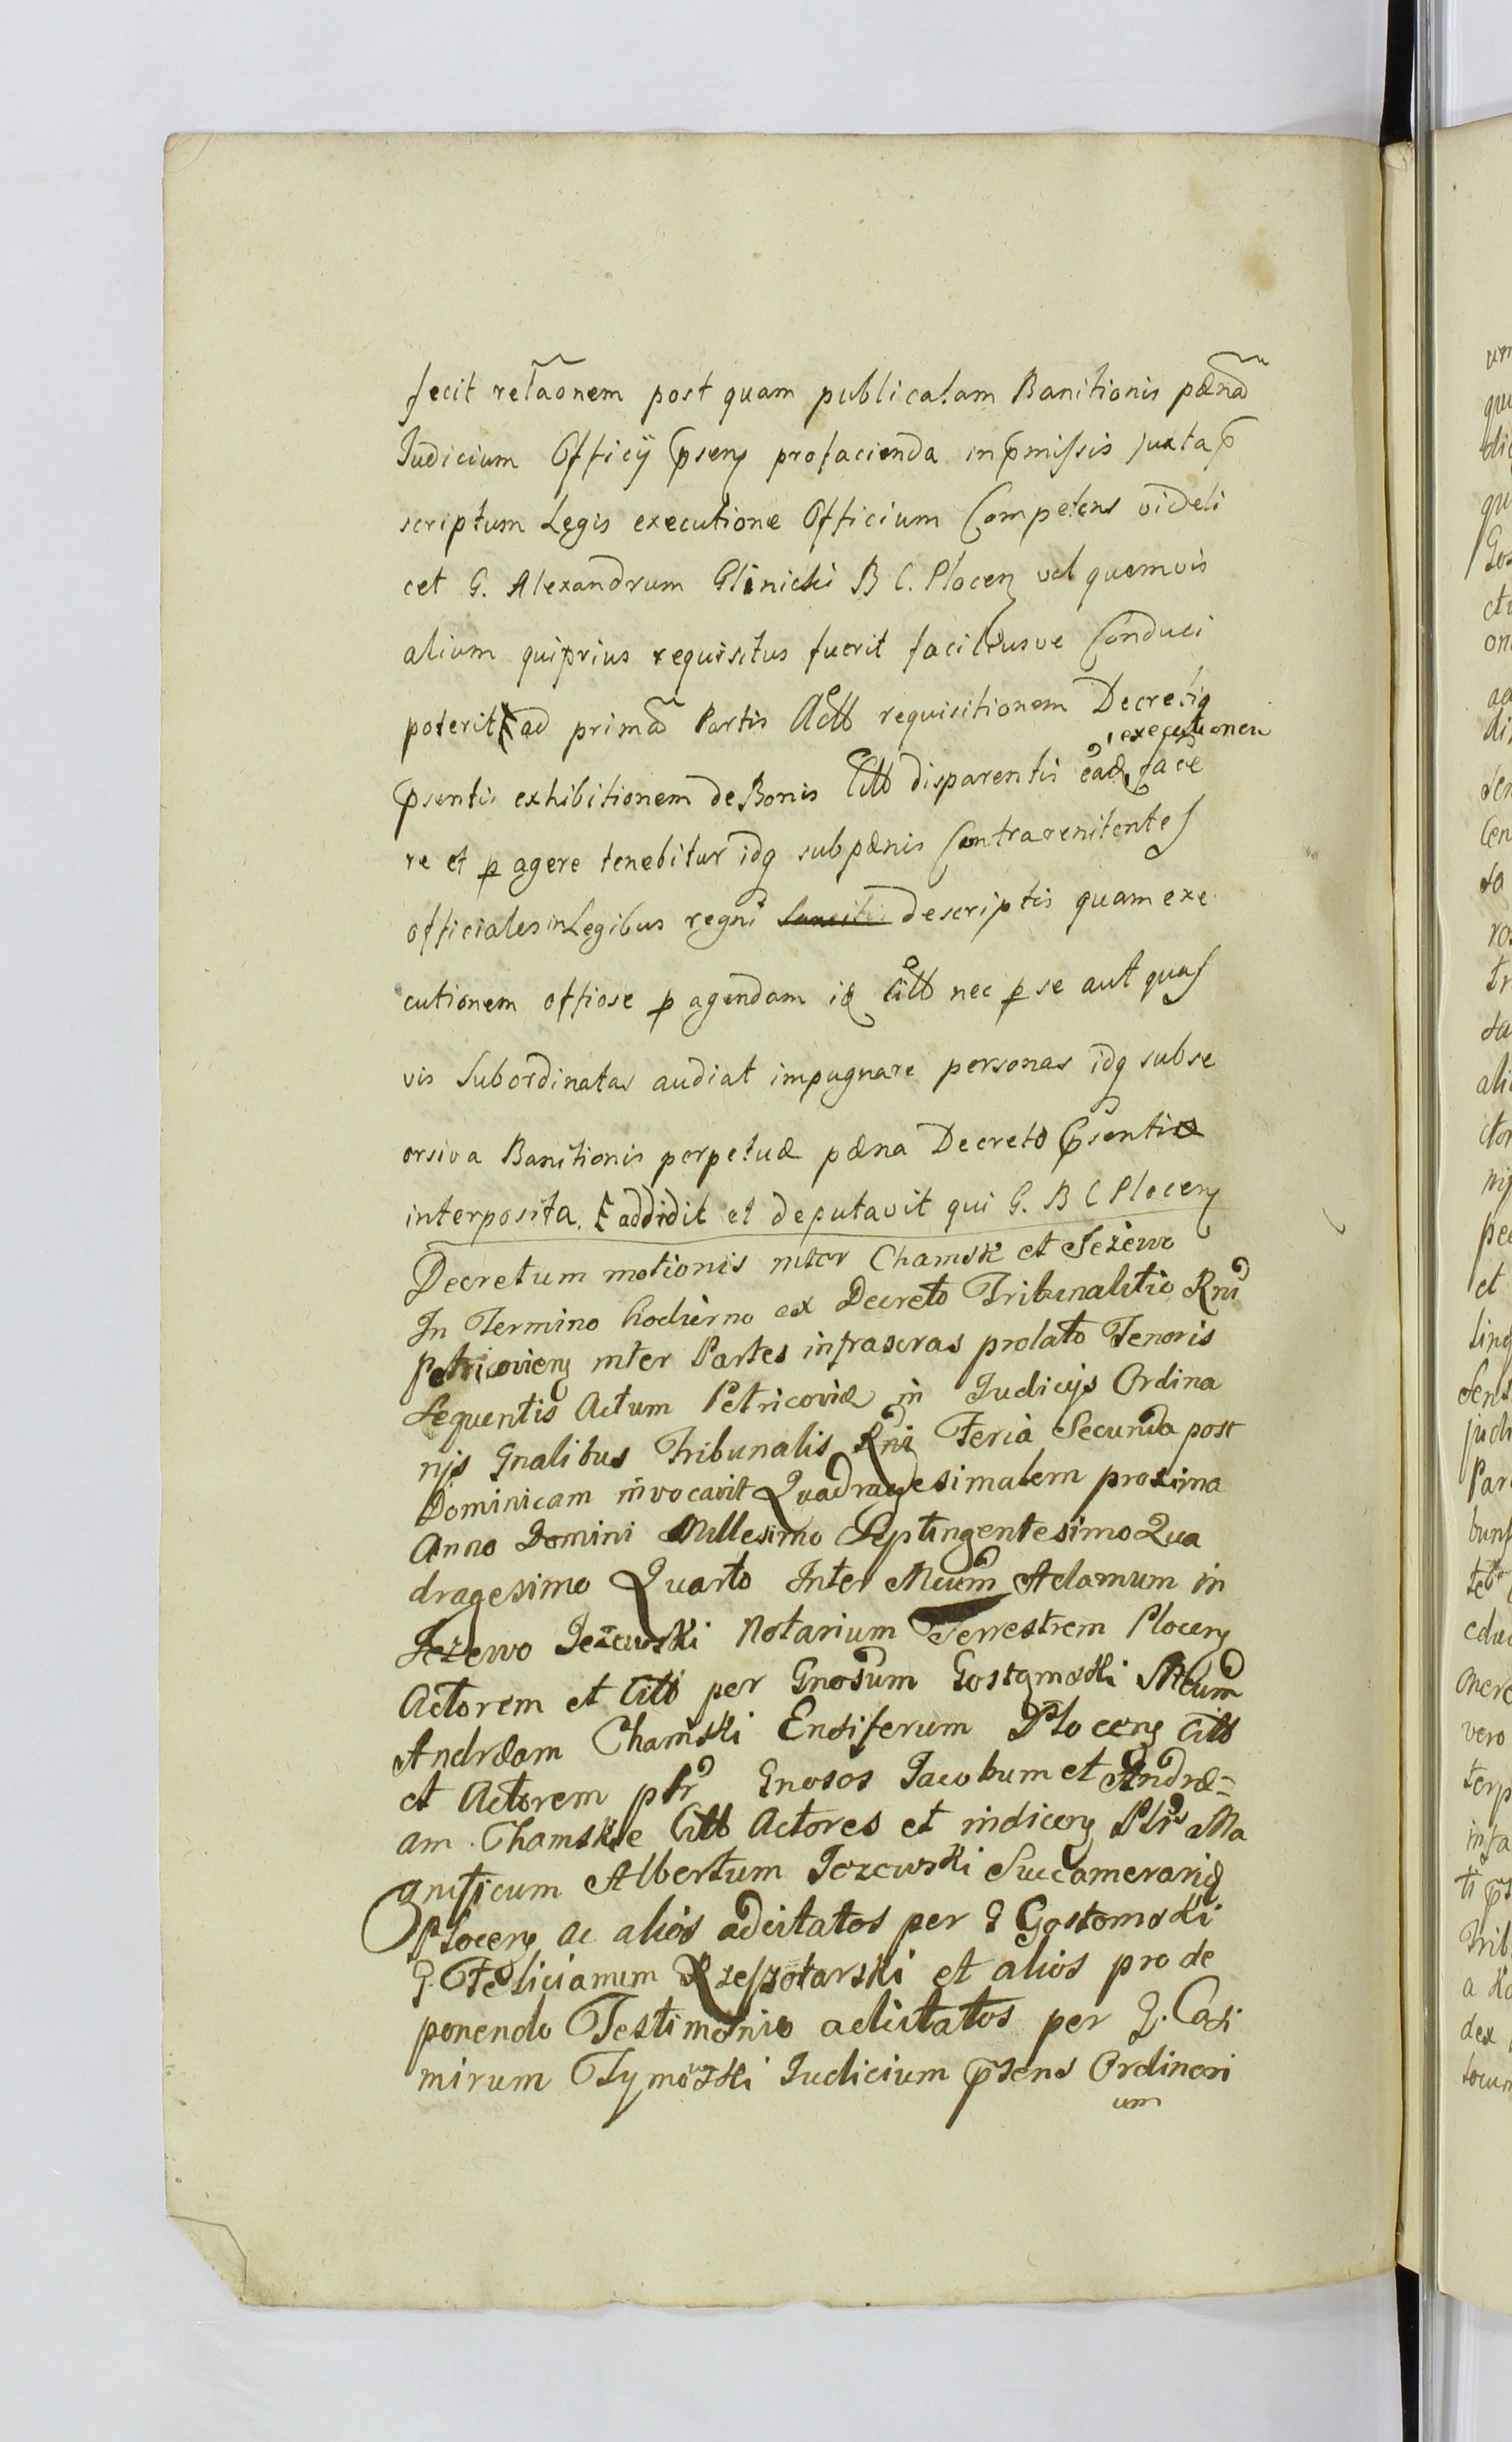 fecit relãonem post quam publicatam Banitionis pænã
Judicium Officij p̃sens profacienda inp̃missis juxta p̃
scriptum Legis executione Officium Competens videli
cet G. Alexandrum Glinicki B C. Plocen vel quemvis
alium quiprius requisitus fuerit faciliusve Conduci
poterit ad primã Partis Actt requisitionem Decretiq
p̃sentis exhibitionem de Bonis Citt disparentis eadẽ executionem face
re et p agere tenebitur idq subpænis Contravenitentes
officiales in Legibus regni descriptis quam exe
cutionem offiose p agendam id Citt nec p se aut quas
vis Subordinatas audiat impugnare personas idq subse
orsiva Banitionis perpetuæ pæna Decreto p̃senti
interposita. addidit et deputavit qui G. B C Plocen
Decretum motionis inter Chamsk et Jeżewo
In Termino hodierno ex Decreto Tribunalitio Rni
Petricovien inter Partes infrascras prolato Tenoris
Sequentis Actum Petricoviæ in Judicijs Ordina
rijs Gnalibus Tribunalis Rni Feria Secunda post
Dominicam invocavit Quadragesimalem proxima
Anno Domini Millesimo Septingentesimo Qua
dragesimo Quarto Inter Mcum Adamum in
Jezewo Jeżewski Notarium Terrestrem Plocen
Actorem et Citt per Gnosum Gostomski Mcum
Andræam Chamski Ensiferum Plocen Citt
et Actorem ptr Gnosos Jacobum et Andræ-
am Chamskie Citt Actores et indicen Ptr Ma
gnificum Albertum Jezewski Succamerariũ
Plocen ac alios adcitatos per G Gostomski
G. Felicianum Rzeszotarski et alios pro de
ponendo Testimonio adcitatos per G. Casi
mirum Tymoski Judicium p̃sens Ordinari
um